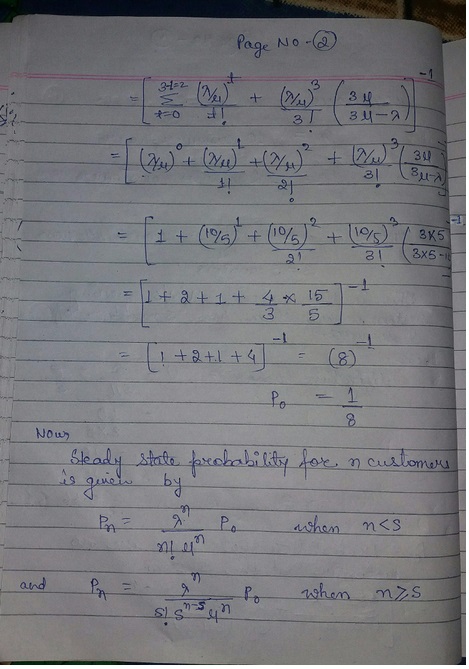 Page No - ②
= [ 3-1=2 Σ t=0 (λ/μ)^t / t! + (λ/μ)^3 / 3! ( 3μ / 3μ-λ ) ]^-1
= [ (λ/μ)^0 + (λ/μ)^1 / 1! + (λ/μ)^2 / 2! + (λ/μ)^3 / 3! ( 3μ / 3μ-λ
= [ 1 + (10/5)^1 + (10/5)^2 / 2! + (10/5)^3 / 3! ( 3×5 / 3×5-
= [ 1 + 2 + 1 + 4/3 × 15/5 ]^-1
= [ 1 + 2 + 1 + 4 ]^-1 = (8)^-1
P₀ = 1/8
Now,
Steady state probability for n customers
is given by
Pn = λ^n / n! μ^n P₀ when n<S
and Pn = λ^n / S! S^n-S μ^n P₀ when n⩾S